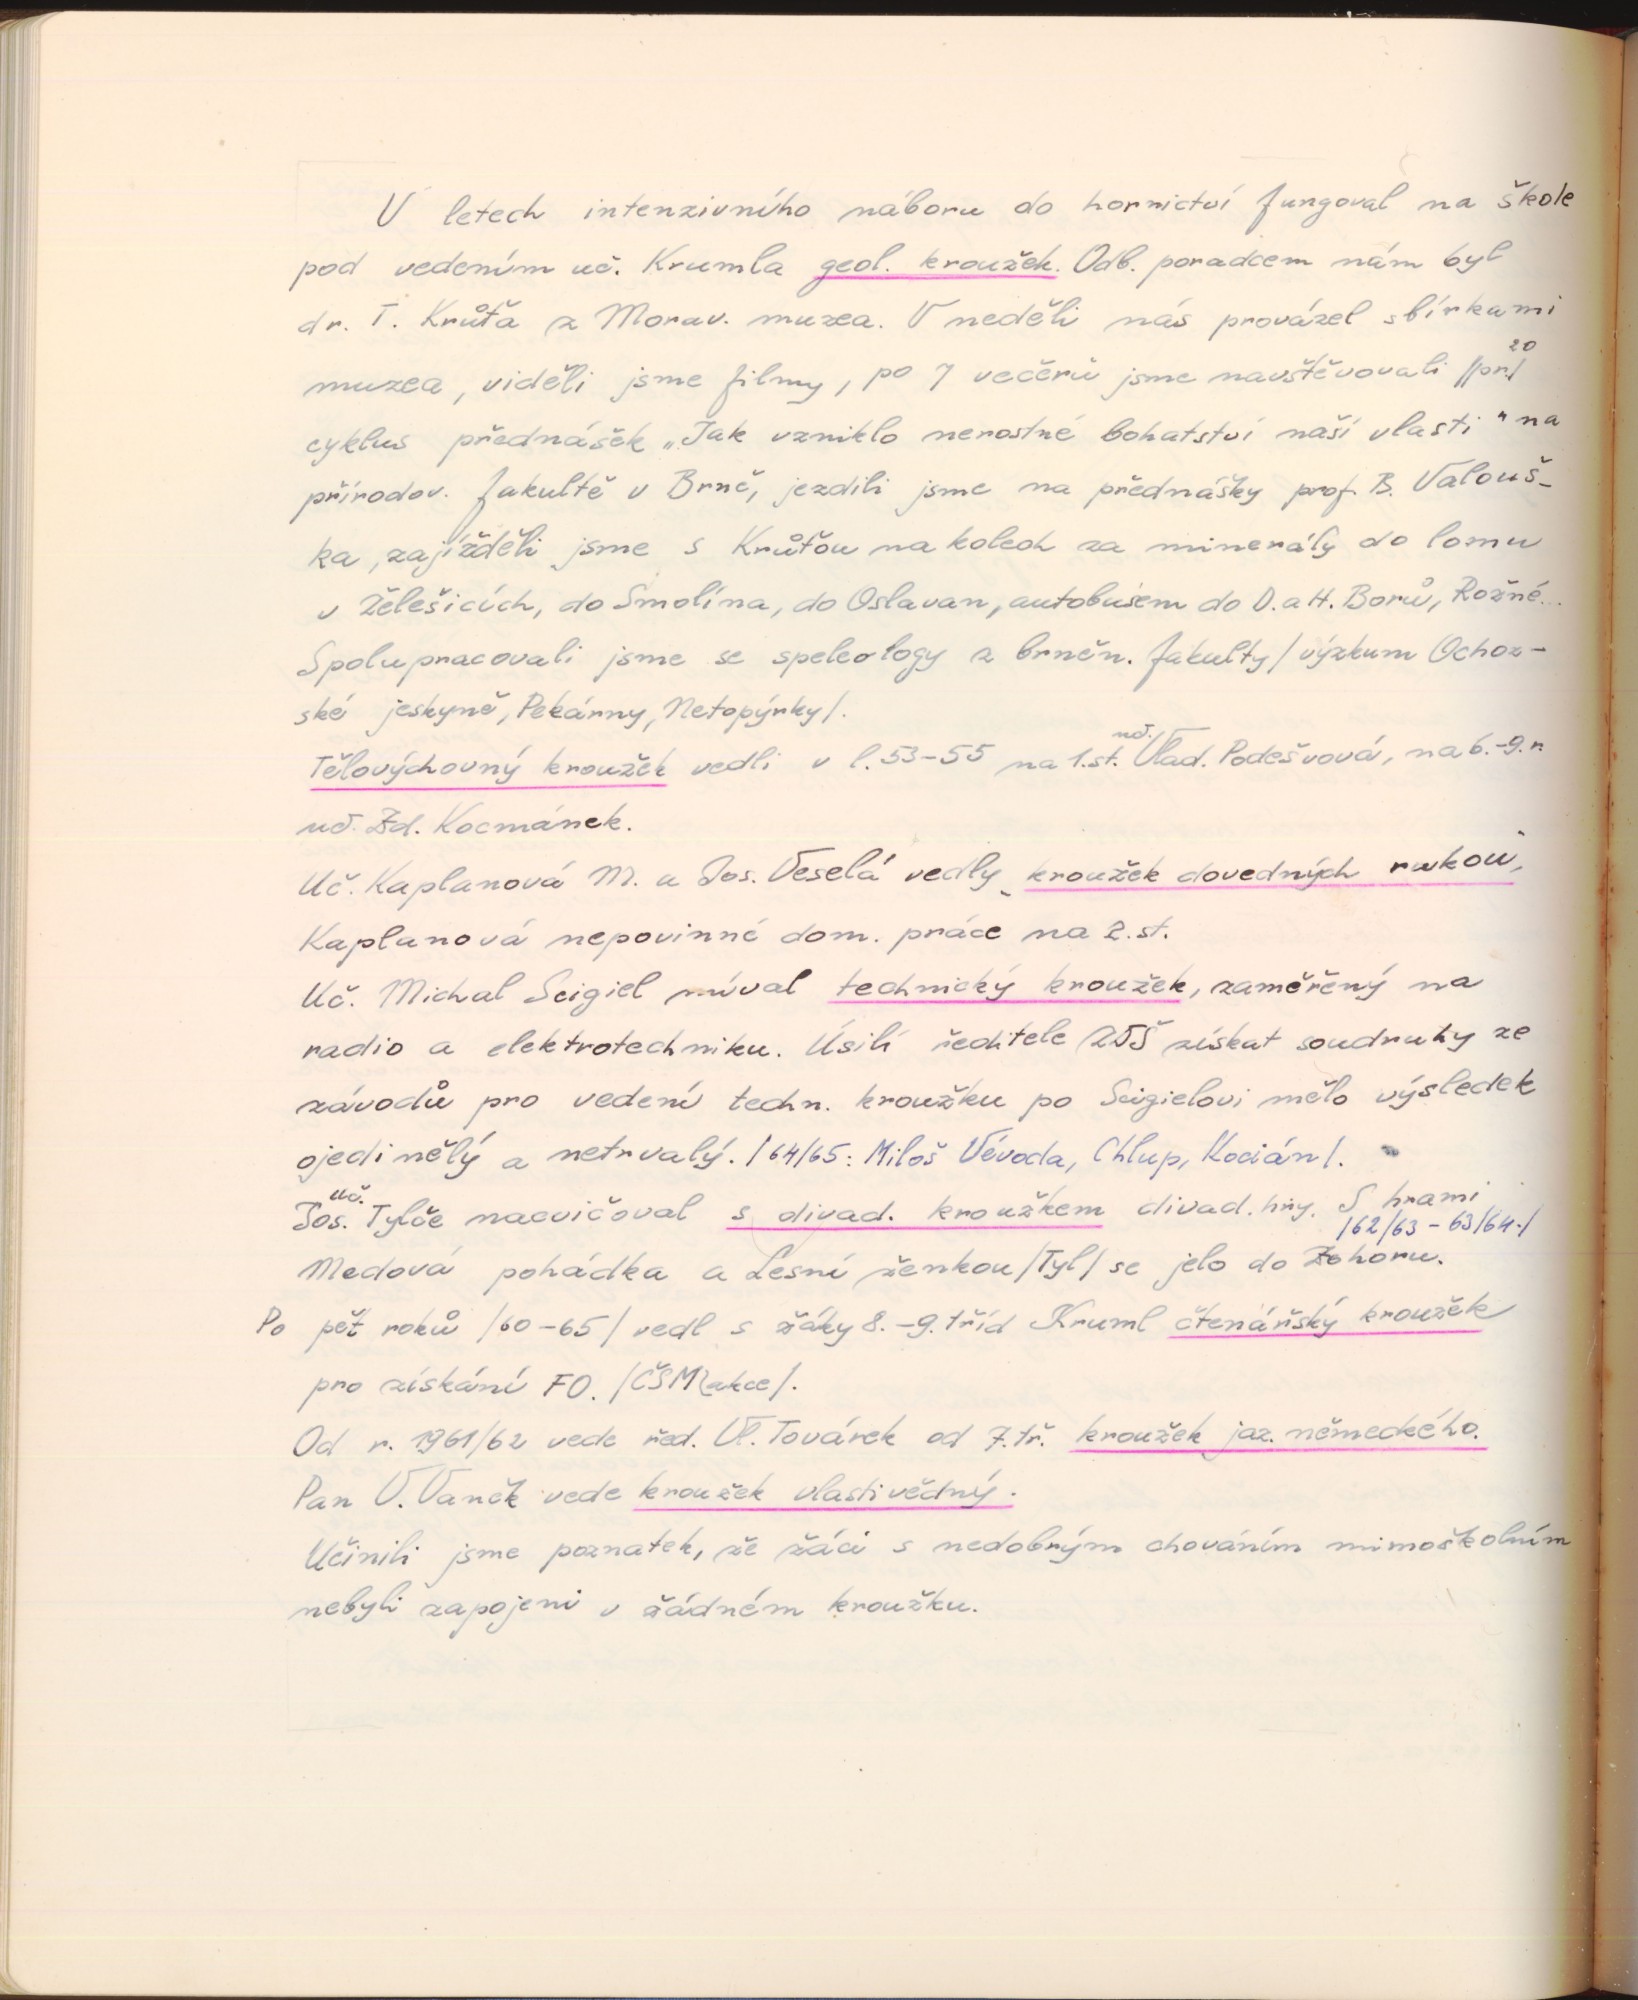 V letech intenzivního náboru do hornictví fungoval na škole
pod vedením uč. Krumla geol. kroužek. Odb. poradcem nám byl
dr. T. Krůťa z Morav. muzea. V neděli nás provázel sbírkami
muzea, viděli jsme filmy, po 7 večerů jsme navštěvovali /pr. 20/
cyklus přednášek „Jak vzniklo nerostné bohatství naší vlasti" na
přírodov. fakultě v Brně, jezdili jsme na přednášky prof. B. Valouš-
ka, zajížděli jsme s Krůťou na kolech za minerály do lomu
v Želešicích, do Smolína, do Oslavan, autobusem do D. a H. Borů, Rožné...
Spolupracovali jsme se speleology z brněn. fakulty /výzkum Ochoz-
ské jeskyně, Pekárny, Netopýrky/.
Tělovýchovný kroužek vedli v l. 53-55 na 1. st. uč. Vlad. Podešvová, na 6.-9. r.
uč. Zd. Kocmánek.
Uč. Kaplanová M. a Jos. Veselá vedly „kroužek dovedných rukou",
Kaplanová nepovinné dom. práce na 2. st.
Uč. Michal Scigiel míval technický kroužek, zaměřený na
radio a elektrotechniku. Úsilí ředitele ZDŠ získat soudruhy ze
závodů pro vedení techn. kroužku po Scigielovi mělo výsledek
ojedinělý a netrvalý. /64/65: Miloš Vévoda, Chlup, Kocián/.
Uč. Jos. Tylče nacvičoval s divad. kroužkem divad. hry. S hrami
/62/63 - 63/64./
Medová pohádka a Lesní ženkou /Tyl/ se jelo do Zohoru.
Po pět roků /60-65/ vedl s žáky 8.-9. tříd Kruml čtenářský kroužek
pro získání FO. /ČSM akce/.
Od r. 1961/62 vede řed. Vl. Továrek od 7. tř. kroužek jaz. německého.
Pan V. Vaněk vede kroužek vlastivědný.
Učinili jsme poznatek, že žáci s nedobrým chováním mimoškolním
nebyli zapojeni v žádném kroužku.